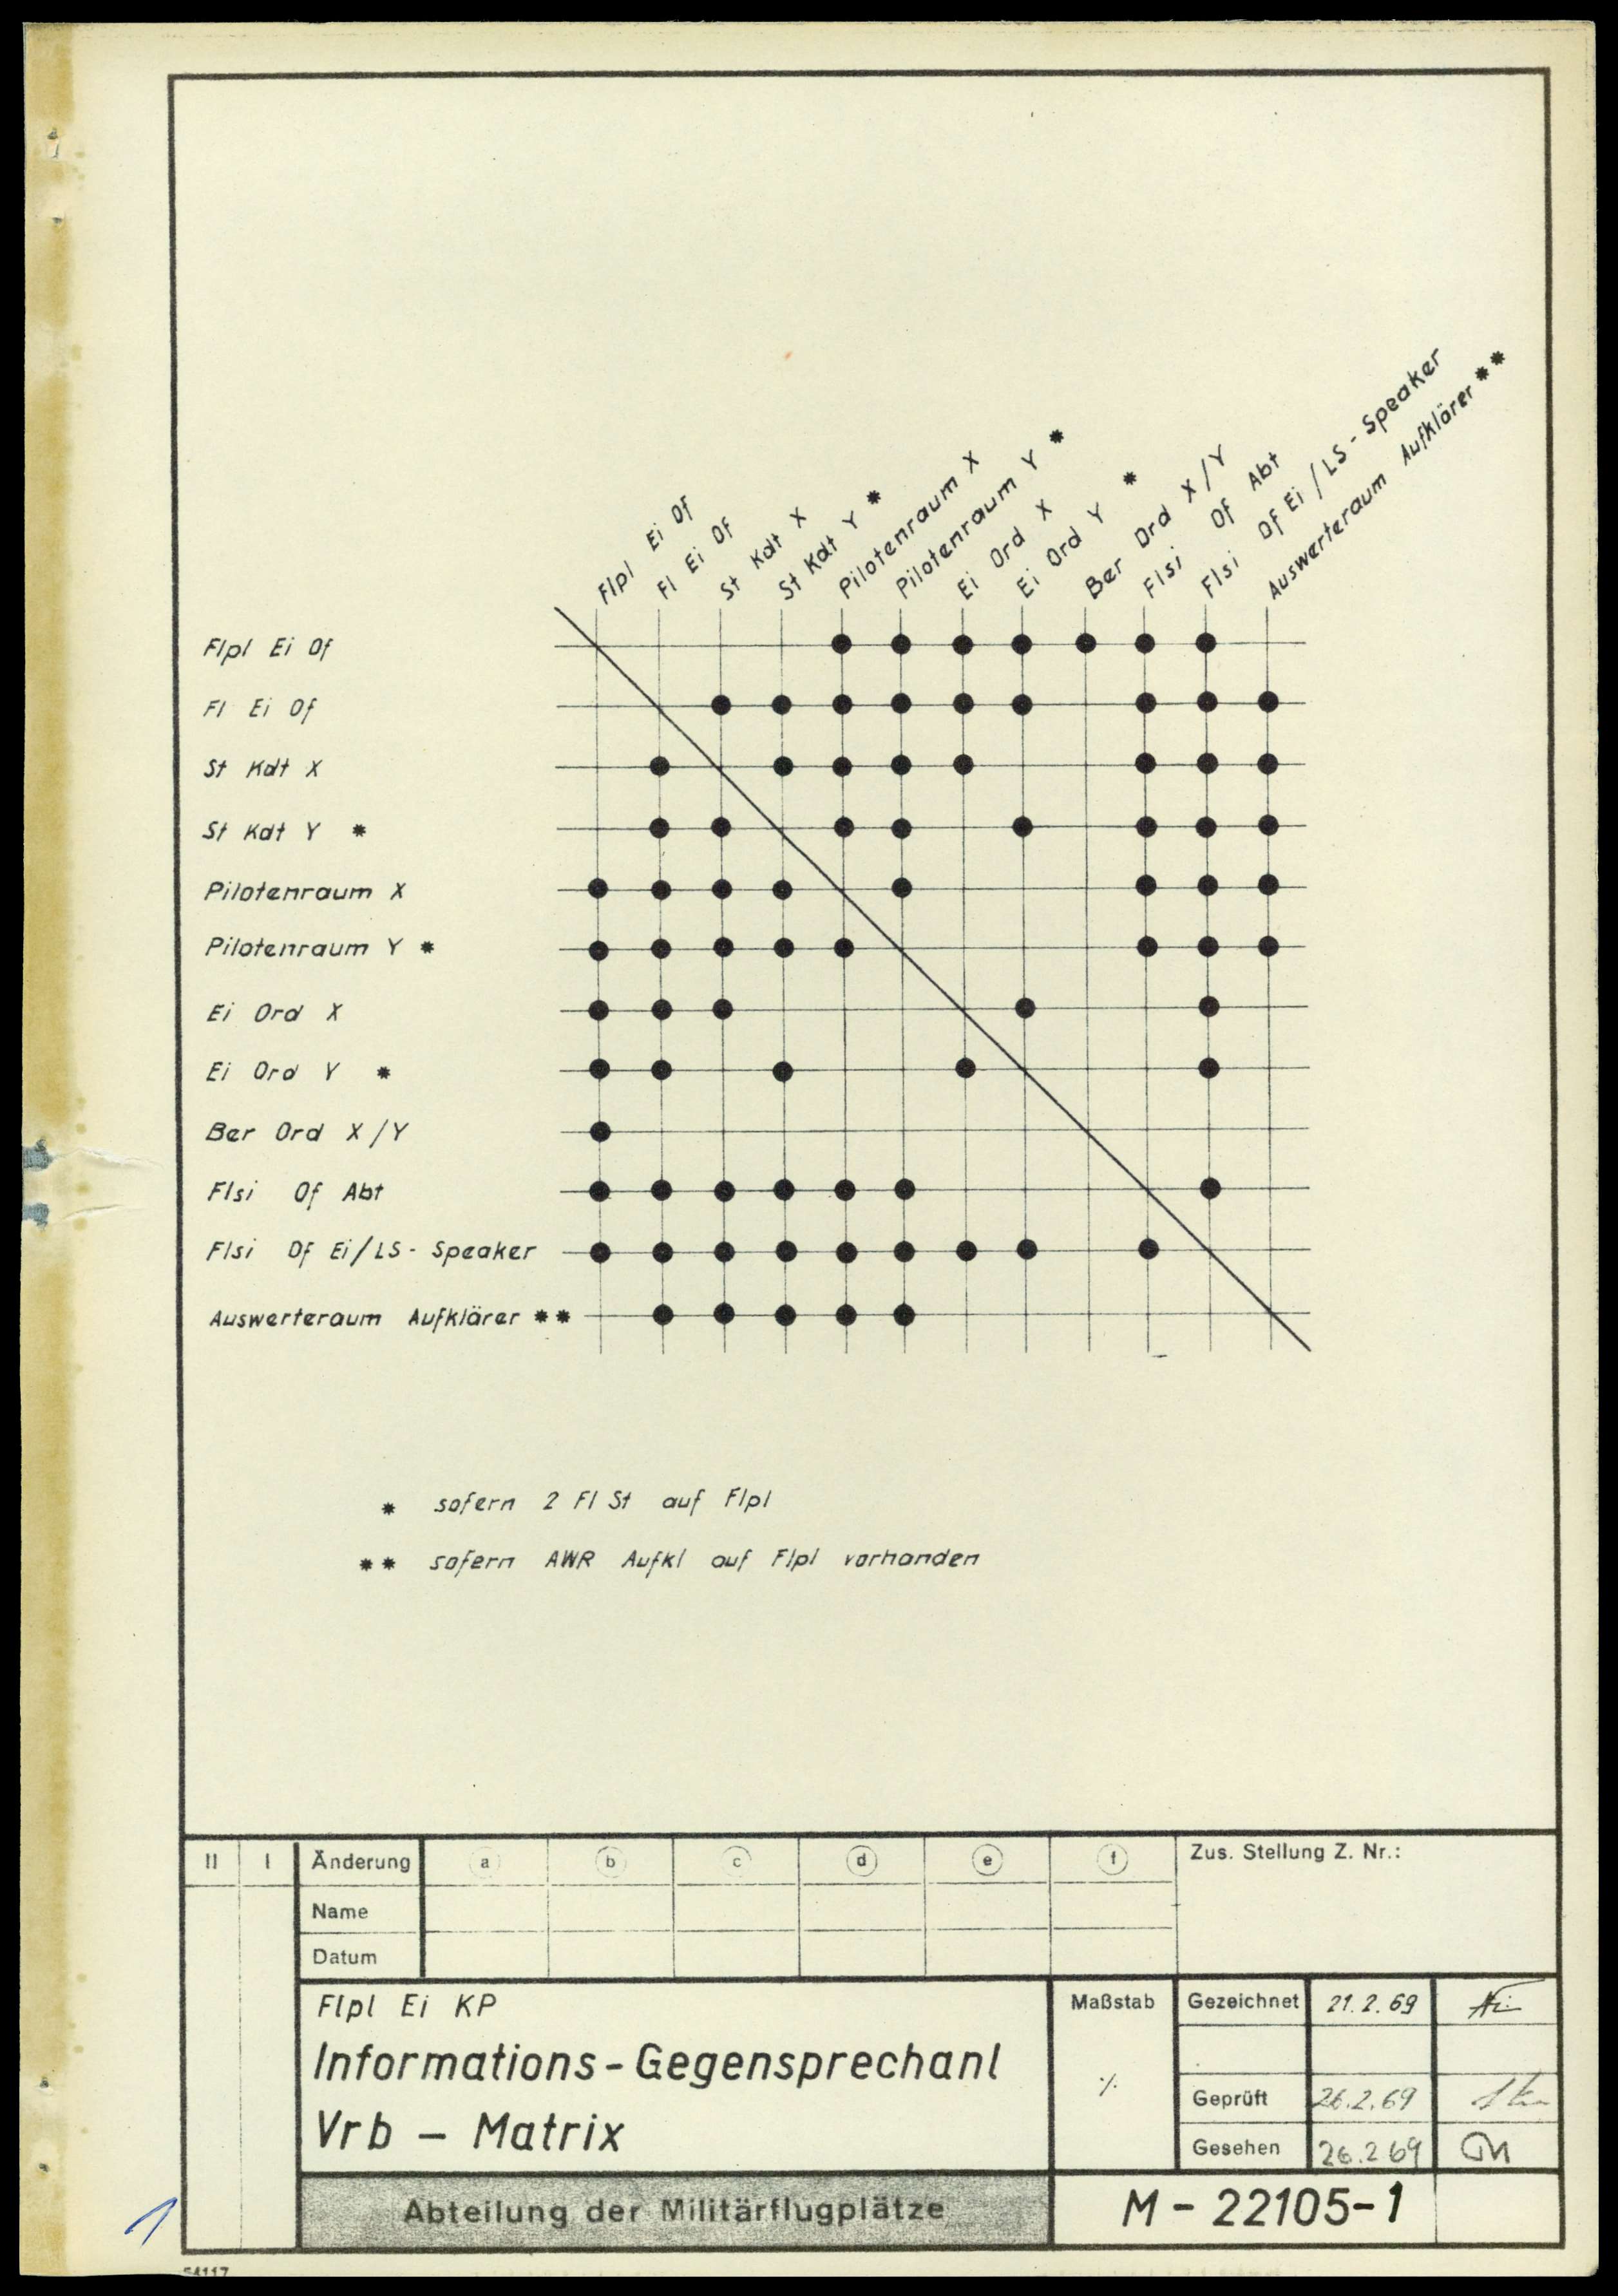 Flpl Ei Of
Fl Ei Of
St Kdt X
St Kdt Y *
Pilotenraum X
Pilotenraum Y *
Ei Ord X
Ei Ord Y *
Ber Ord X/Y
Flsi Of Abt
Flsi Of Ei/LS-Speaker
Auswerteraum Aufklärer **
Flpl Ei Of
Fl Ei Of
St Kdt X
St Kdt Y *
Pilotenraum X
Pilotenraum Y *
Ei Ord X
Ei Ord Y *
Ber Ord X/Y
Flsi Of Abt
Flsi Of Ei/LS-Speaker
Auswerteraum Aufklärer **
* sofern 2 Fl St auf Flpl
** sofern AWR Aufkl auf Flpl vorhanden
II I Änderung a b c d e f Zus. Stellung Z. Nr.:
Name
Datum
Flpl Ei KP
Informations-Gegensprechanl
Vrb - Matrix
Maßstab
·/.
Gezeichnet 21.2.69
Geprüft 26.2.69
Gesehen 26.2 69
Abteilung der Militärflugplätze
M-22105-1
1